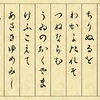 ちりぬるを
わかよたれそ
つねならむ
うゐのおくやま
けふこえて
あさきゆめみし